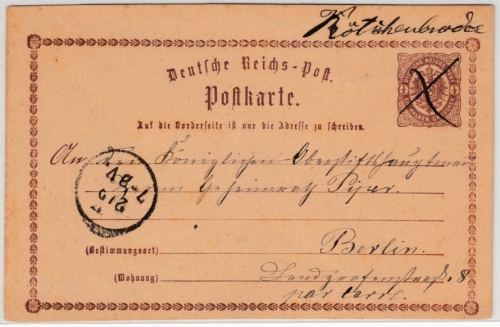 Kötzschenbroda
Deutsche Reichs-Post.
Postkarte.
Auf die Vorderseite ist nur die Adresse zu schreiben.
An den Königlichen
Herrn Geheimrath Piper.
7-8V
21 5
(Bestimmungsort) Berlin.
(Wohnung) Landgrafenstrasse 8
par carte.